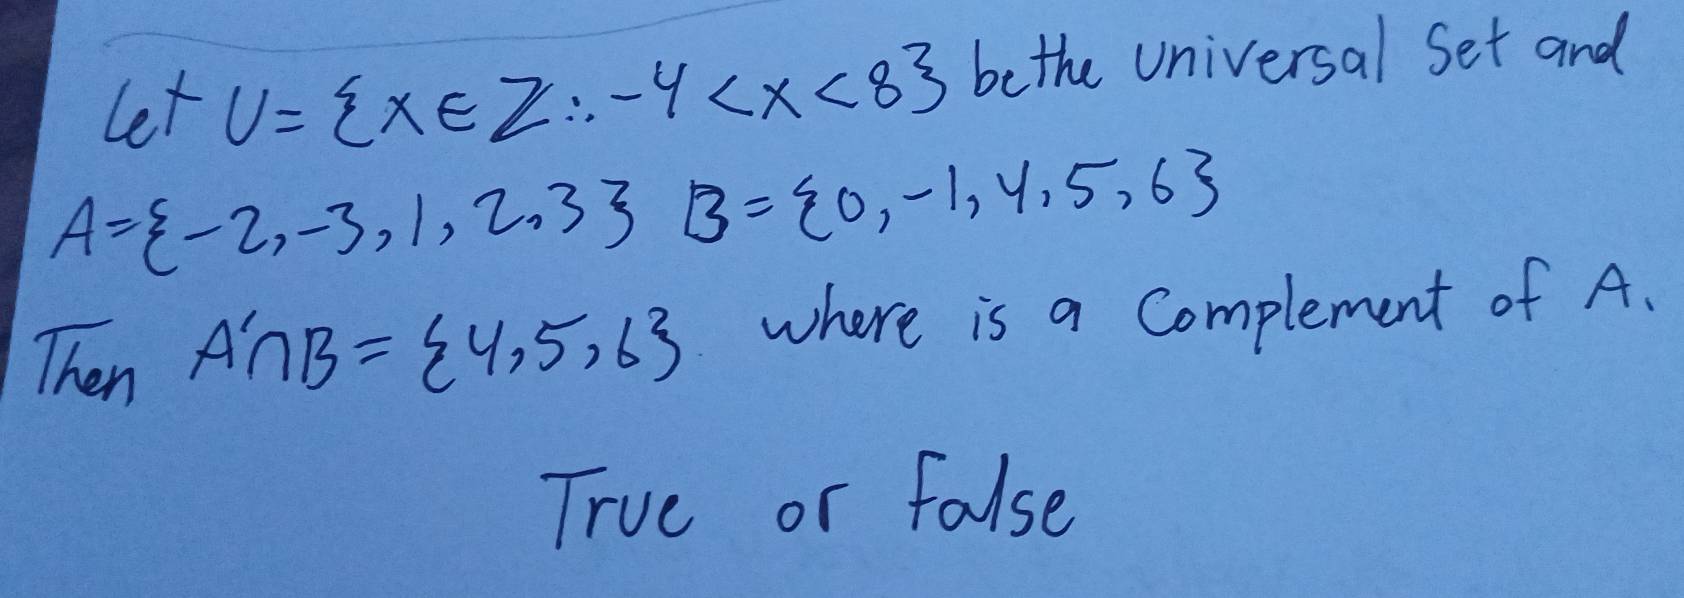 Let U = {x ∈ Z : . -4 < x < 8} be the universal set and
A = {-2, -3, 1, 2, 3} B = {0, -1, 4, 5, 6}
Then A' ∩ B = {4, 5, 6} where is a complement of A.
True or false